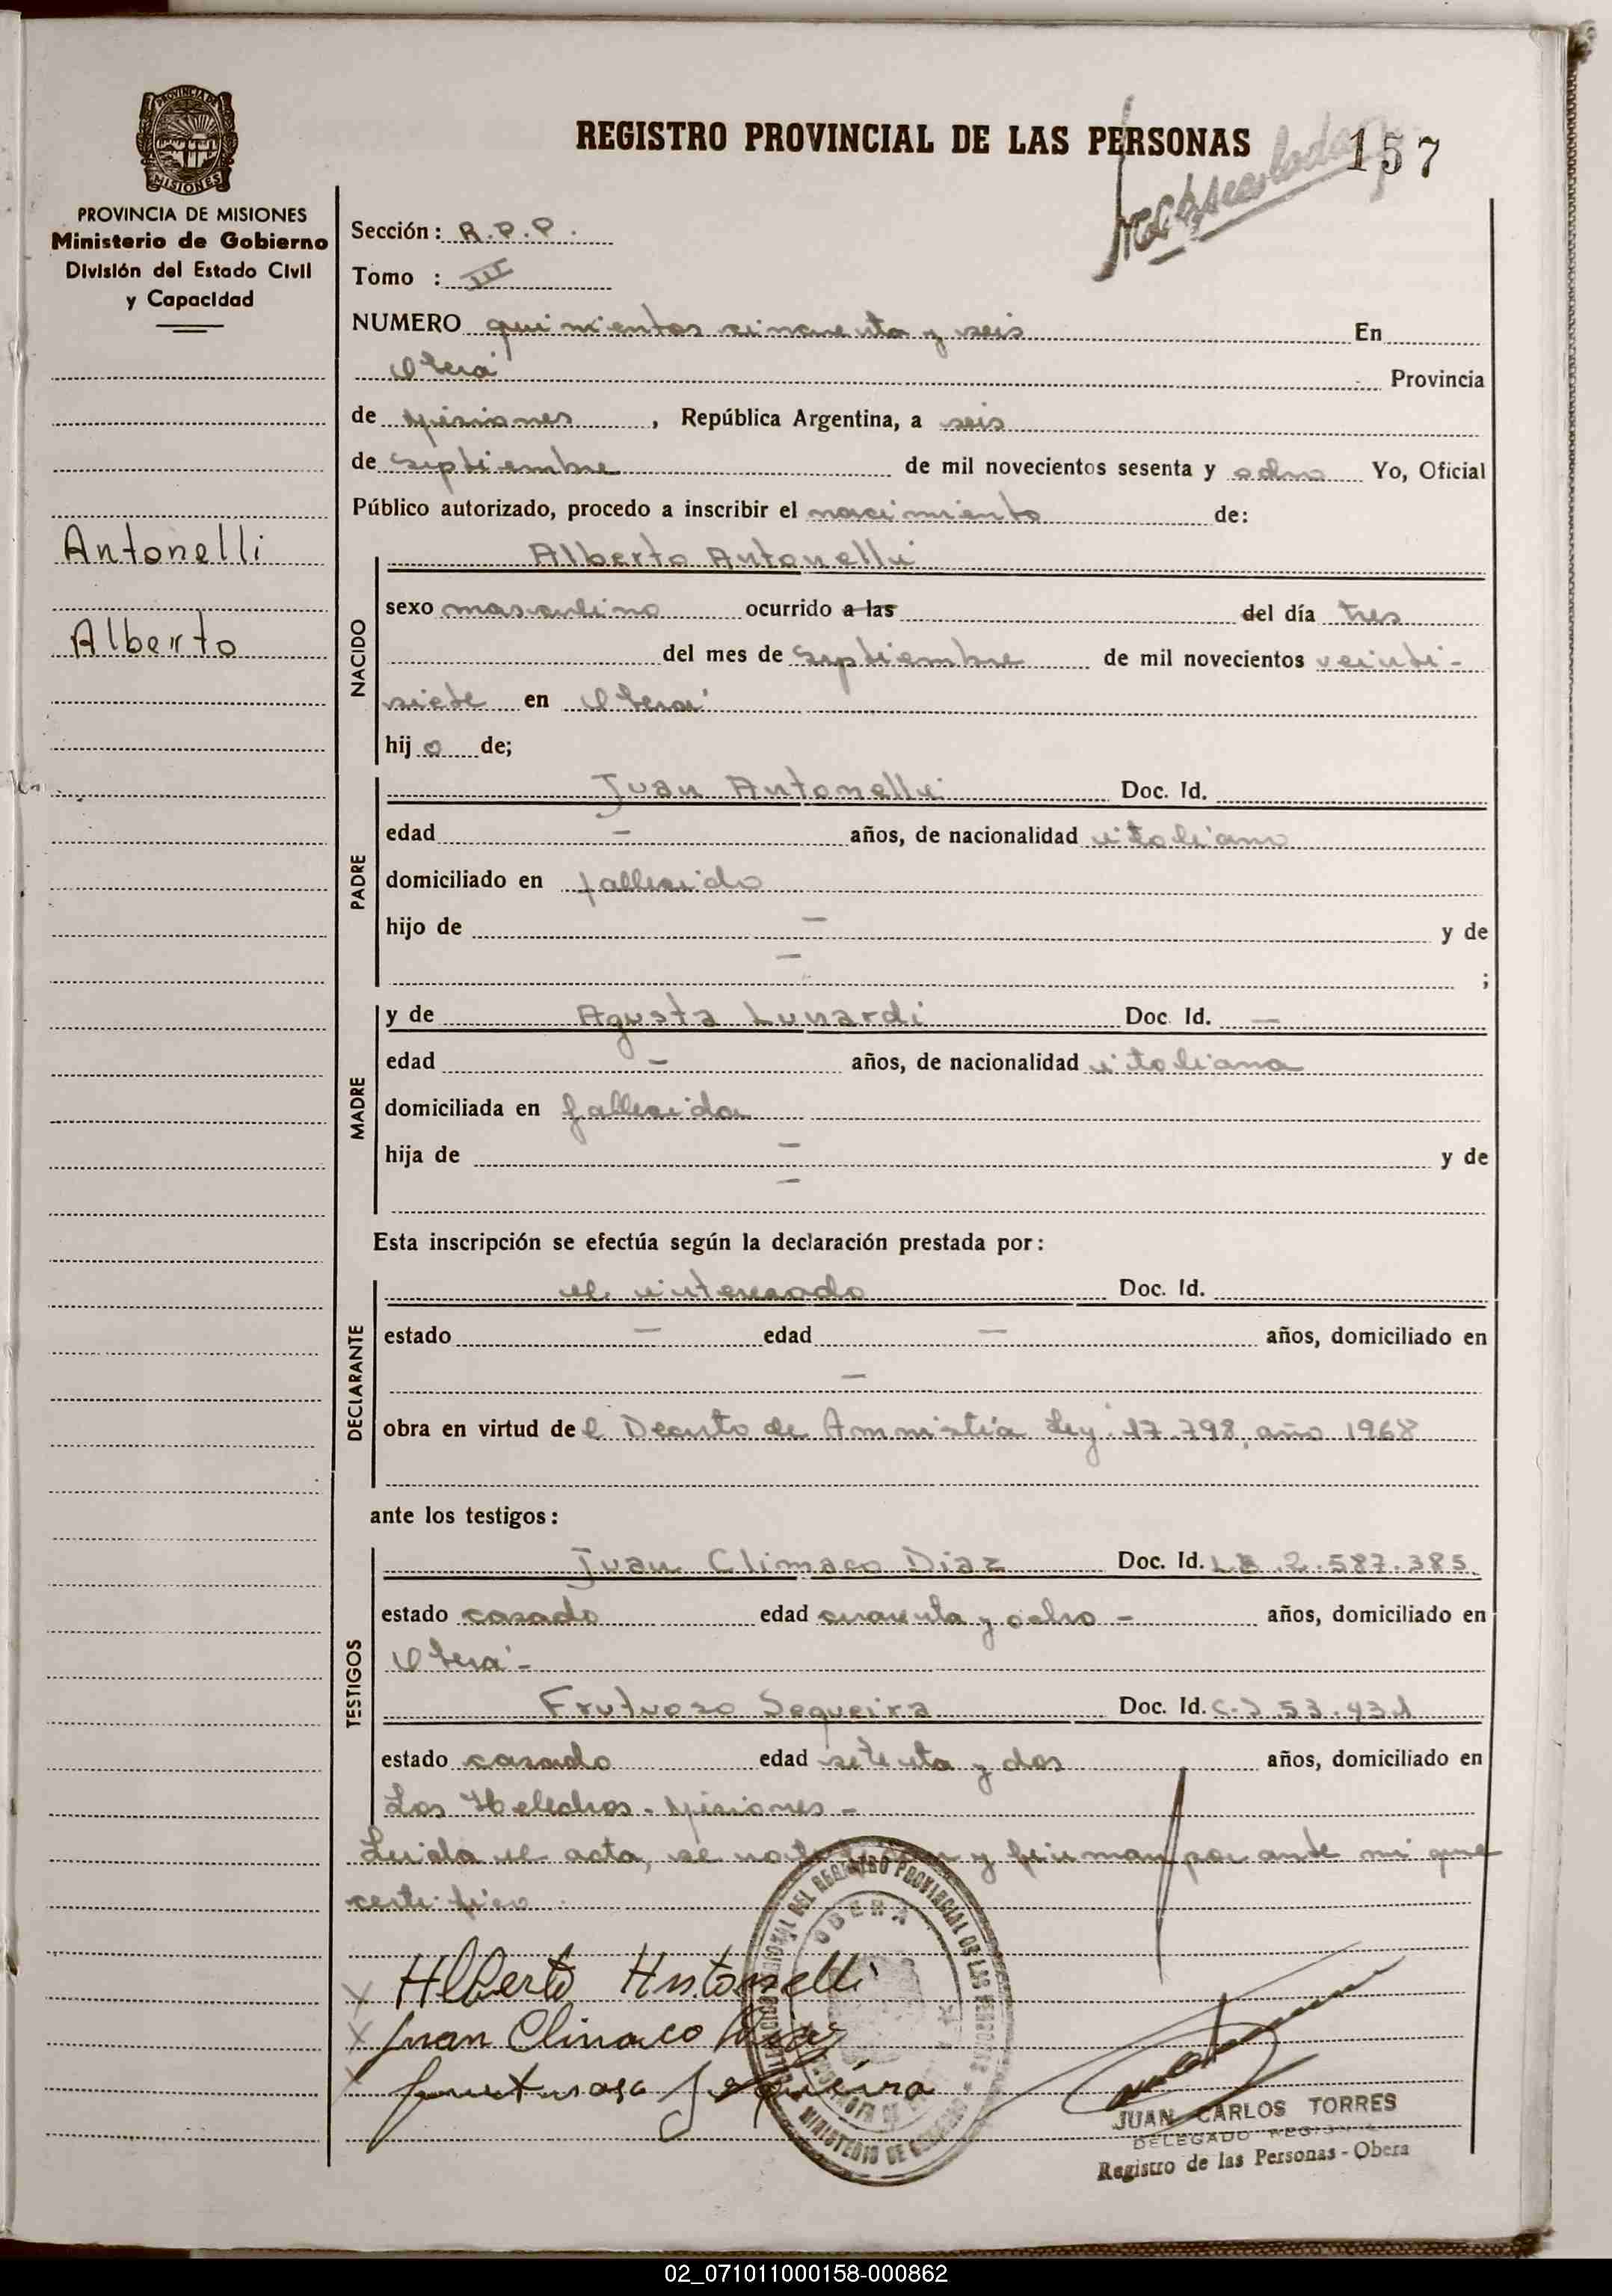 PROVINCIA DE MISIONES
Ministerio de Gobierno
División del Estado Civil
y Capacidad
Antonelli
Alberto
REGISTRO PROVINCIAL DE LAS PERSONAS
157
Sección: R.P.P.
Tomo : III
NUMERO quinientos cincuenta y seis En
Oberá Provincia
de Misiones, República Argentina, a seis
de septiembre de mil novecientos sesenta y ocho Yo, Oficial
Público autorizado, procedo a inscribir el nacimiento de:
NACIDO
Alberto Antonelli
sexo masculino ocurrido a las del día tres
del mes de septiembre de mil novecientos veinti-
siete en Oberá
hijo de;
PADRE
Juan Antonelli Doc. Id.
edad — años, de nacionalidad italiano
domiciliado en fallecido
hijo de — y de
— ;
MADRE
y de Agusta Lunardi Doc. Id. —
edad — años, de nacionalidad italiana
domiciliada en fallecida
hija de — y de
—
Esta inscripción se efectúa según la declaración prestada por:
DECLARANTE
el interesado Doc. Id.
estado — edad — años, domiciliado en
—
obra en virtud del Decreto de Amnistía Ley 17.798, año 1968
ante los testigos:
TESTIGOS
Juan Climaco Diaz Doc. Id. 2.587.385.
estado casado edad cuarenta y ocho - años, domiciliado en
Oberá -
Frutuoso Sequeira Doc. Id. C.I 53.431
estado casado edad setenta y dos años, domiciliado en
Los Helechos - Misiones -
Leida el acta, se y firman por ante mi que
certifico.
Alberto Antonelli
Juan Climaco Diaz
Frutuoso Sequeira
OBERA
JUAN CARLOS TORRES
DELEGADO REGIONAL
Registro de las Personas - Obera
02_071011000158-000862